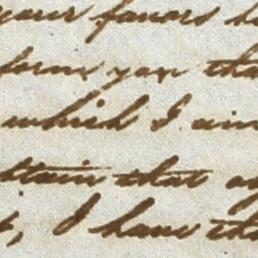 your favors
form you tha
which I aim
ttain that
t, I have tha